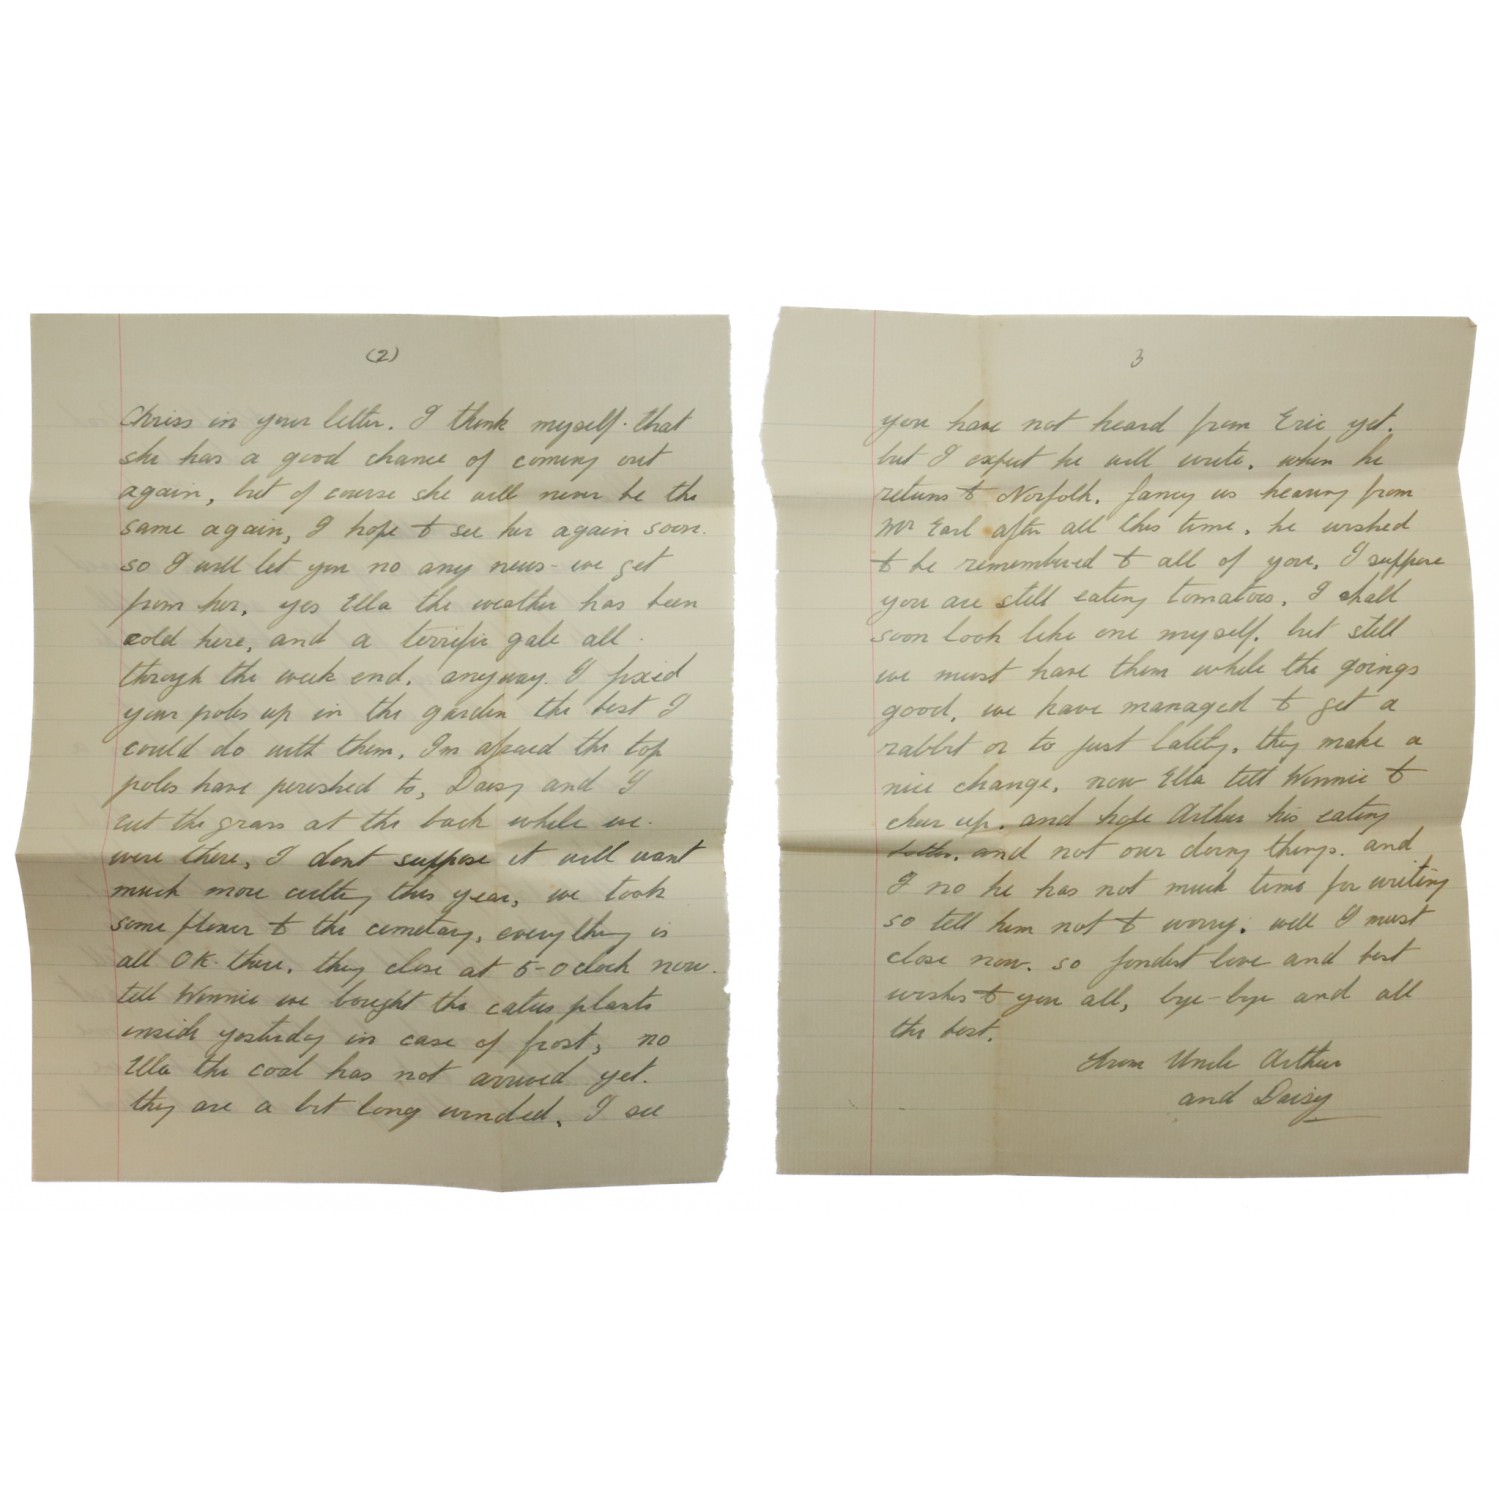 (2)
Chriss in your letter. I think myself. that
she has a good chance of coming out
again, but of course she will never be the
same again, I hope to see her again soon.
so I will let you no any news - we get
from her, yes Ella the weather has been
cold here, and a terrific gale all.
through the week end, anyway. I fixed
your poles up in the garden the best I
could do with them, Im afraed the top
poles have perished to, Daisy and I
cut the grass at the back while we.
were there, I dont suppose it will want
much more cutting this year, we took
some flower to the cemetary, everything is
all O.K. there. they close at 5-0 clock now.
tell Winnie we bought the catus plants
inside yesterday in case of frost, no
Ella the coal has not arrived yet.
they are a bit long winded, I see
3
you have not heard from Eric yet.
but I expect he will write, when he
returns to Norfolk. fancy us hearing from
Mr Earl after all this time, he wished
to be remembered to all of you, I suppose
you are still eating tomatoes, I shall
soon look like one myself. but still
we must have them while the goings
good, we have managed to get a
rabbit or to just lately, they make a
nice change, now Ella tell Winnie to
cheer up, and hope Arthur his eating
better, and not our doing things. and
I no he has not much time for writing
so tell him not to worry. well I must
close now. so fondest love and best
wishes to you all, bye-bye and all
the best.
from Uncle Arthur
and Daisy